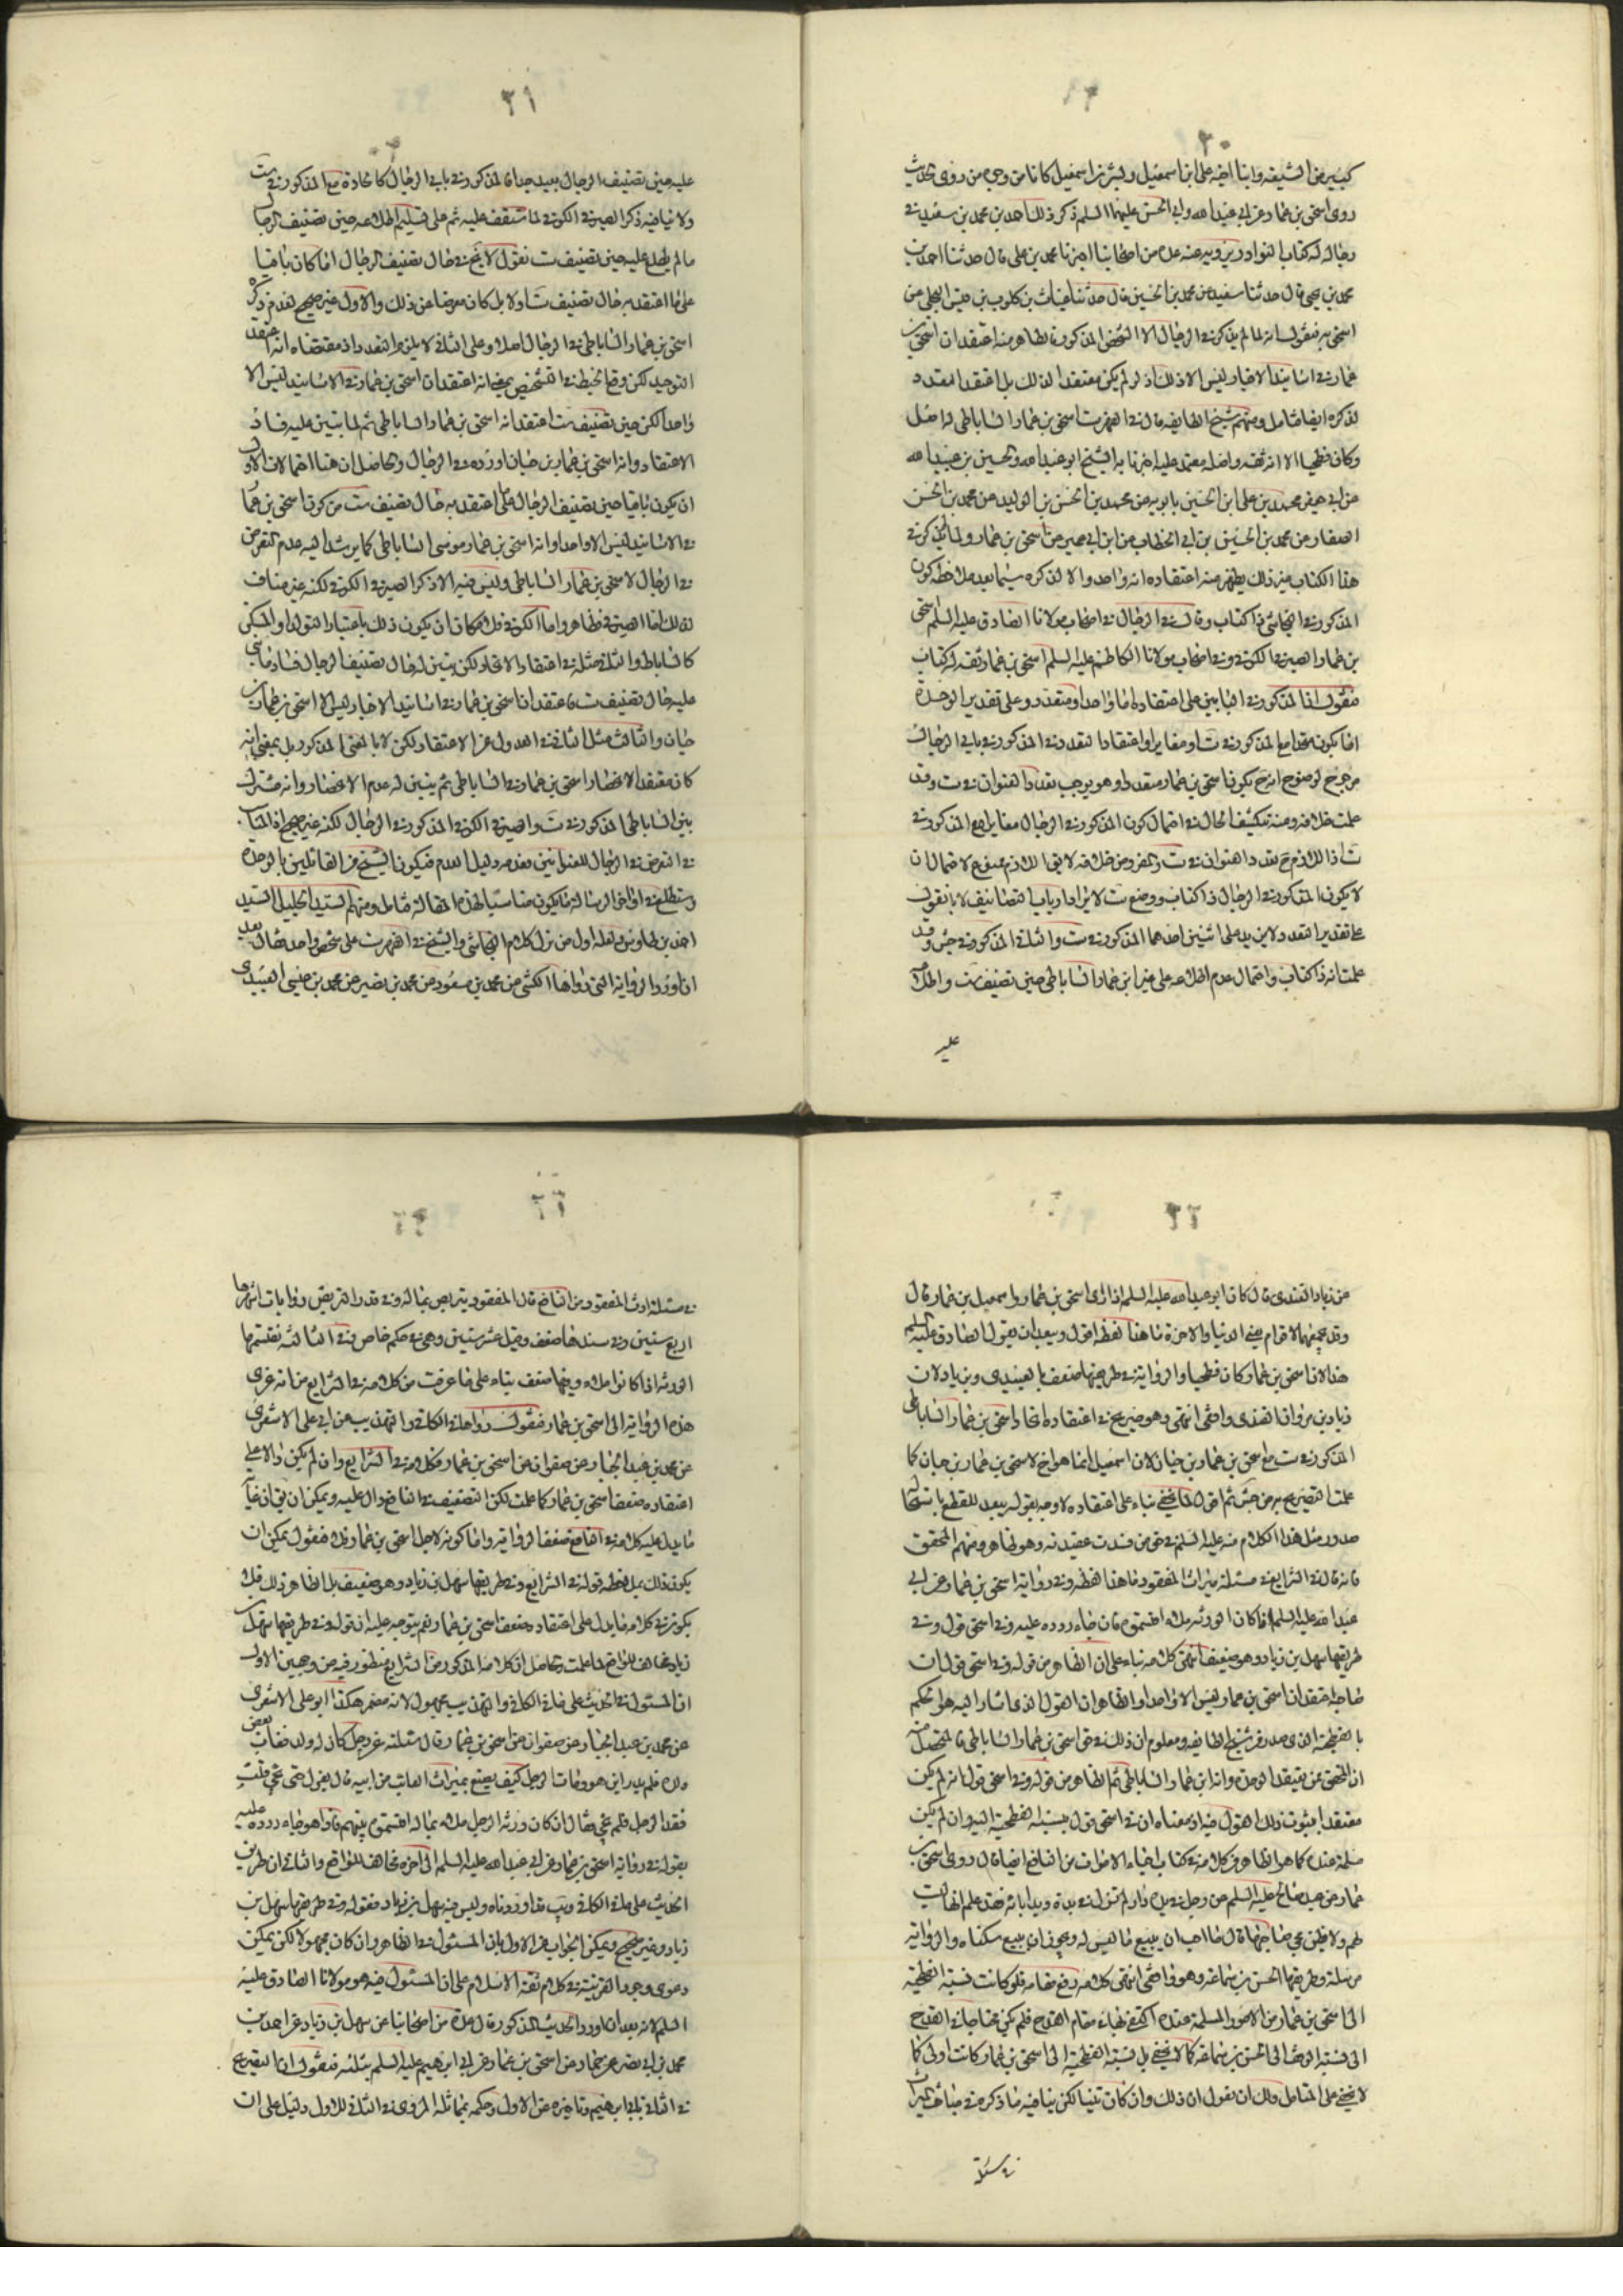 ٣٠
كبير من الشيعه وابنا اخيه على ابن اسمعيل وبشر بن اسمعيل كانا من وجوه من روى الحديث
روى اسحق بن عمار عن ابى عبد الله وابى الحسن عليهما السلم ذكر ذلك احمد بن محمد بن سعيد فى
رجاله له كتاب النوادر يرويه عنه عدة من اصحابنا اخبرنا محمد بن على قال حدثنا احمد بن
محمد بن يحيى قال حدثنا سعيد عن محمد بن الحسين قال حدثنا غياث بن كلوب بن قيس البجلى عن
اسحق به فنقول انه لما لم يذكر فى الرجال الا الشخص المذكور فظاهر منه اعتقد ان اسحق بن
عمار فى اسانيد الاخبار ليس الا ذلك اذ لو لم يكن معتقدا لذلك بل اعتقد التعدد
لذكره ايضا فتامل ومنهم شيخ الطايفه قال فى الفهرست اسحق بن عمار الساباطى له اصل
وكان فطحيا الا انه ثقه واصله معتمد عليه اخبرنا به الشيخ ابو عبد الله والحسين بن عبيد الله
عن ابى جعفر محمد بن على ابن الحسين بابويه عن محمد بن الحسن بن الوليد عن محمد بن الحسن
الصفار عن محمد بن الحسين بن ابى الخطاب عن ابن ابى عمير عن اسحق بن عمار ولما لم يذكر فى
هذا الكتاب غير ذلك يظهر منه اعتقاده انه واحد والا لذكره سيما بعد ملاحظه كون
المذكور فى النجاشى ذا كتاب وقال فى الرجال فى اصحاب مولانا الصادق عليه السلم اسحق
بن عمار الصيرفى الكوفى وفى اصحاب مولانا الكاظم عليه السلم اسحق بن عمار ثقه له كتاب
فنقول ان المذكور فى البابين على اعتقاده اما واحد او متعدد وعلى تقدير الوحدة
اما يكون متحدا مع المذكور فى ست او مغايرا واعتقاد التعدد فى المذكور فى بابى الرجال
مرجوح لوضوح انه ح يكون اسحق بن عمار متعددا وهو يوجب تعدد العنوان فى ست وقد
علمت خلافه ومنه ينكشف الحال فى احتمال كون المذكور فى الرجال مغايرا مع المذكور فى
ست اذ اللازم ح تعدد العنوان فى ست والمفروض خلافه لا يقال اللازم ممنوع لاحتمال ان
لا يكون المذكور فى الرجال ذا كتاب ووضع ست لايراد ارباب التصانيف لانا نقول
على تقدير التعدد لا يزيد على اثنين احدهما المذكور فى ست والثانى المذكور فى جش وقد
علمت انه ذا كتاب واحتمال عدم اطلاعه على غير ابن عمار الساباطى حين تصنيف ست واطلاعه
عليه
٣١
عليه حين تصنيف الرجال بعيد جدا فالمذكور فى بابى الرجال كانا متحدة مع المذكور فى ست
ولا ينافيه ذكر الصيرفى الكوفى لما ستقف عليه ثم على تسليم اطلاعه حين تصنيف الرجال
ما لم يطلع عليه حين تصنيف ست نقول لا يخ فى حال تصنيف الرجال اما كان باقيا
على ما اعتقد به حال تصنيف ست اولا بل كان معرضا عن ذلك والاول غير صحيح لعدم ذكره
اسحق بن عمار الساباطى فى الرجال اصلا وعلى الثانى لا يلزم التعدد اذ مقتضاه انه اعتقد
التوحيد لكن وقع الخبط فى التشخيص بمعنى انه اعتقد ان اسحق بن عمار فى الاسانيد ليس الا
واحدا لكن حين تصنيف ست اعتقد انه اسحق بن عمار الساباطى ثم لما تبين عليه فساد
الاعتقاد وانه اسحق بن عمار بن حيان اورده فى الرجال والحاصل ان هنا احتمالان الاول
ان يكون باقيا حين تصنيف الرجال على ما اعتقد به حال تصنيف ست من كون اسحق بن عمار
فى الاسانيد ليس الا واحدا وانه اسحق بن عمار موسى الساباطى كما يرشد اليه عدم التعرض
فى الرجال لاسحق بن عمار الساباطى وليس فيه الا ذكر الصيرفى الكوفى لكنه غير مناف
لذلك اما الصيرفى فظاهر واما الكوفى فلامكان ان يكون ذلك باعتبار التولد او المسكن
كالساباط والثانى مثله فى اعتقاد الاتحاد لكن تبين له حال تصنيف الرجال فساد ما بنى
عليه حال تصنيف ست فاعتقد ان اسحق بن عمار فى اسانيد الاخبار ليس الا اسحق بن عمار بن
حيان والثالث مثل الثانى فى العدول عن الاعتقاد لكن لا بالمعنى المذكور بل بمعنى انه
كان معتقدا لانحصار اسحق بن عمار فى الساباطى ثم تبين له عدم الانحصار وانه مشترك
بين الساباطى المذكور فى ست والصيرفى الكوفى المذكور فى الرجال لكنه غير صحيح اذ المناسب
فى التعرض فى الرجال للعنوانين فعدمه دليل العدم فيكون الشيخ من القائلين بالوحدة
وستطلع فى اواخر الرسالة ما يكون مناسبا لهذه المقالة فتامل ومنهم السيد الجليل السيد
احمد بن طاوس ولعله اول من نزل كلام النجاشى والشيخ فى الفهرست على شخص واحد فقال بعد
ان اورد الرواية التى رواها الكشى عن محمد بن مسعود عن محمد بن نصير عن محمد بن عيسى العبيدى
٣٢
عن زياد القندى قال كان ابو عبد الله عليه السلم اذا راى اسحق بن عمار واسمعيل بن عمار قال
وقد يجمعهما لاقوام يعنى الدنيا والاخرة ما هذا لفظه اقول ويبعد ان يقول الصادق عليه السلم
هذا لان اسحق بن عمار كان فطحيا والرواية فى طريقها ضعف بالعبيدى وبزياد لان
زياد بن مروان القندى واقفى انتهى وهو صريح فى اعتقاده اتحاد اسحق بن عمار الساباطى
المذكور فى ست مع اسحق بن عمار بن حيان لان اسمعيل انما هو اخ لاسحق بن عمار بن حيان كما
علمت التصريح به من جش ثم اقول لا يخفى بناء على اعتقاده لا وجه بقوله يبعد للقطع باستحالة
صدور مثل هذا الكلام منه عليه السلم فى حق من فسدت عقيدته وهو ظاهر ومنهم المحقق
فانه قال فى الشرايع فى مسئلة ميراث المفقود ما هذا لفظه وفى رواية اسحق بن عمار عن ابى
عبد الله عليه السلم اذا كان الورثه ملاء اقتسموه فان جاء ردوه عليه وفى اسحق قول وفى
طريقها سهل بن زياد وهو ضعيف انتهى كلامه بناء على ان الظاهر من قوله وفى اسحق قول ان
صاحبه اعتقد ان اسحق بن عمار ليس الا واحدا والظاهر ان القول الذى اشار اليه هو الحكم
بالفطحية الذى صدر من شيخ الطايفه ومعلوم ان ذلك فى حق اسحق بن عمار الساباطى فالمحصل منه
ان المحقق ممن يعتقد الوحدة وانه ابن عمار الساباطى ثم الظاهر من قوله وفى اسحق قول انه لم يكن
معتقدا بثبوت ذلك القول فيه اذ معناه ان فى اسحق قول بنسبة الفطحية اليه وان لم يكن
مسلمة عنده كما هو الظاهر من كلامه فى كتاب احياء الاموات من النافع ايضا قال روى اسحق بن
عمار عن عبد صالح عليه السلم عن رجل فى يده دار لم تزل فى يده ويد ابائه فقد علم انها ليست
لهم ولا يظن مجى صاحبها قال ما احب ان يبيع ما ليس له ويجوز ان يبيع سكناه والرواية
مرسلة وطريقها الحسن بن سماعه وهو واقفى انتهى كلامه رفع مقامه فلو كانت نسبة الفطحية
الى اسحق بن عمار من الامور المسلمة عنده اكتفى بها فى مقام القدح فلم يكن محتاجا فى القدح
الى نسبة الوقف الى الحسن بن سماعه كما لا يخفى بل نسبة الفطحية الى اسحق بن عمار كانت اولى كما
لا يخفى على المتامل ولك ان تقول ان ذلك وان كان متينا لكن ينافيه ما ذكره فى مباحث الميراث
فى مسئلة
فى مسئلة ارث المفقود من النافع قال المفقود يتربص بماله وفى قدر التربص روايات اشهرها
اربع سنين وفى سندها ضعف وقيل عشر سنين وهى فى حكم خاص وفى الثالثه يقتسمها
الورثه اذا كانوا ملاء وفيها ضعف بناء على ما عرفت من كلامه فى الشرايع من انه عزى
هذه الرواية الى اسحق بن عمار فنقول رواها فى الكافى والتهذيب عن ابى على الاشعرى
عن محمد بن عبد الجبار عن صفوان عن اسحق بن عمار فكلامه فى الشرايع وان لم يكن دالا على
اعتقاده ضعف اسحق بن عمار كما علمت لكن التضعيف فى النافع دال عليه ويمكن ان يق ان غاية
ما يدل عليه كلامه فى النافع ضعف الرواية واما كونه لاجل اسحق بن عمار فلا فنقول يمكن ان
يكون ذلك بملاحظه قوله فى الشرايع وفى طريقها سهل بن زياد وهو ضعيف بل الظاهر ذلك فلا
يكون فى كلامه ما يدل على اعتقاده ضعف اسحق بن عمار نعم يتوجه عليه ان قوله وفى طريقها سهل بن
زياد مخالف للواقع لما علمت والحاصل ان كلامه المذكور من الشرايع منظور فيه من وجهين الاول
ان المسئول فى الحديث على ما فى الكافى والتهذيب مجهول لانه مضمر هكذا ابو على الاشعرى
عن محمد بن عبد الجبار عن صفوان عن اسحق بن عمار قال سئلته عن رجل كان له ولد فغاب بعض
ولده فلم يدر اين هو ومات الرجل كيف يصنع بميراث الغائب من ابيه قال يعزل حتى يجى قلت
فقد الرجل فلم يجى فقال ان كان ورثة الرجل ملاء بماله اقتسموه بينهم فاذا هو جاء ردوه عليه
بقوله فى رواية اسحق بن عمار عن ابى عبد الله عليه السلم الى اخره مخالف للواقع والثانى ان طريق
الحديث على ما فى الكافى ويب ما اوردناه وليس فيه سهل بن زياد فقوله وفى طريقها سهل بن
زياد غير صحيح ويمكن الجواب عن الاول بان المسئول فى الظاهر وان كان مجهولا لكن يمكن
دعوى وجود القرينة فى كلام ثقة الاسلام على ان المسئول فيه هو مولانا الصادق عليه
السلم لانه بعد ان اورد الحديث المذكور قال عدة من اصحابنا عن سهل بن زياد عن احمد بن
محمد بن ابى نصر عن حماد عن اسحق بن عمار عن ابى ابرهيم عليه السلم مثله فنقول ان التصريح
فى الثانى بابى ابرهيم وتاخيره عن الاول وحكمه بمماثلة المروى فى الثانى للاول دليل على ان